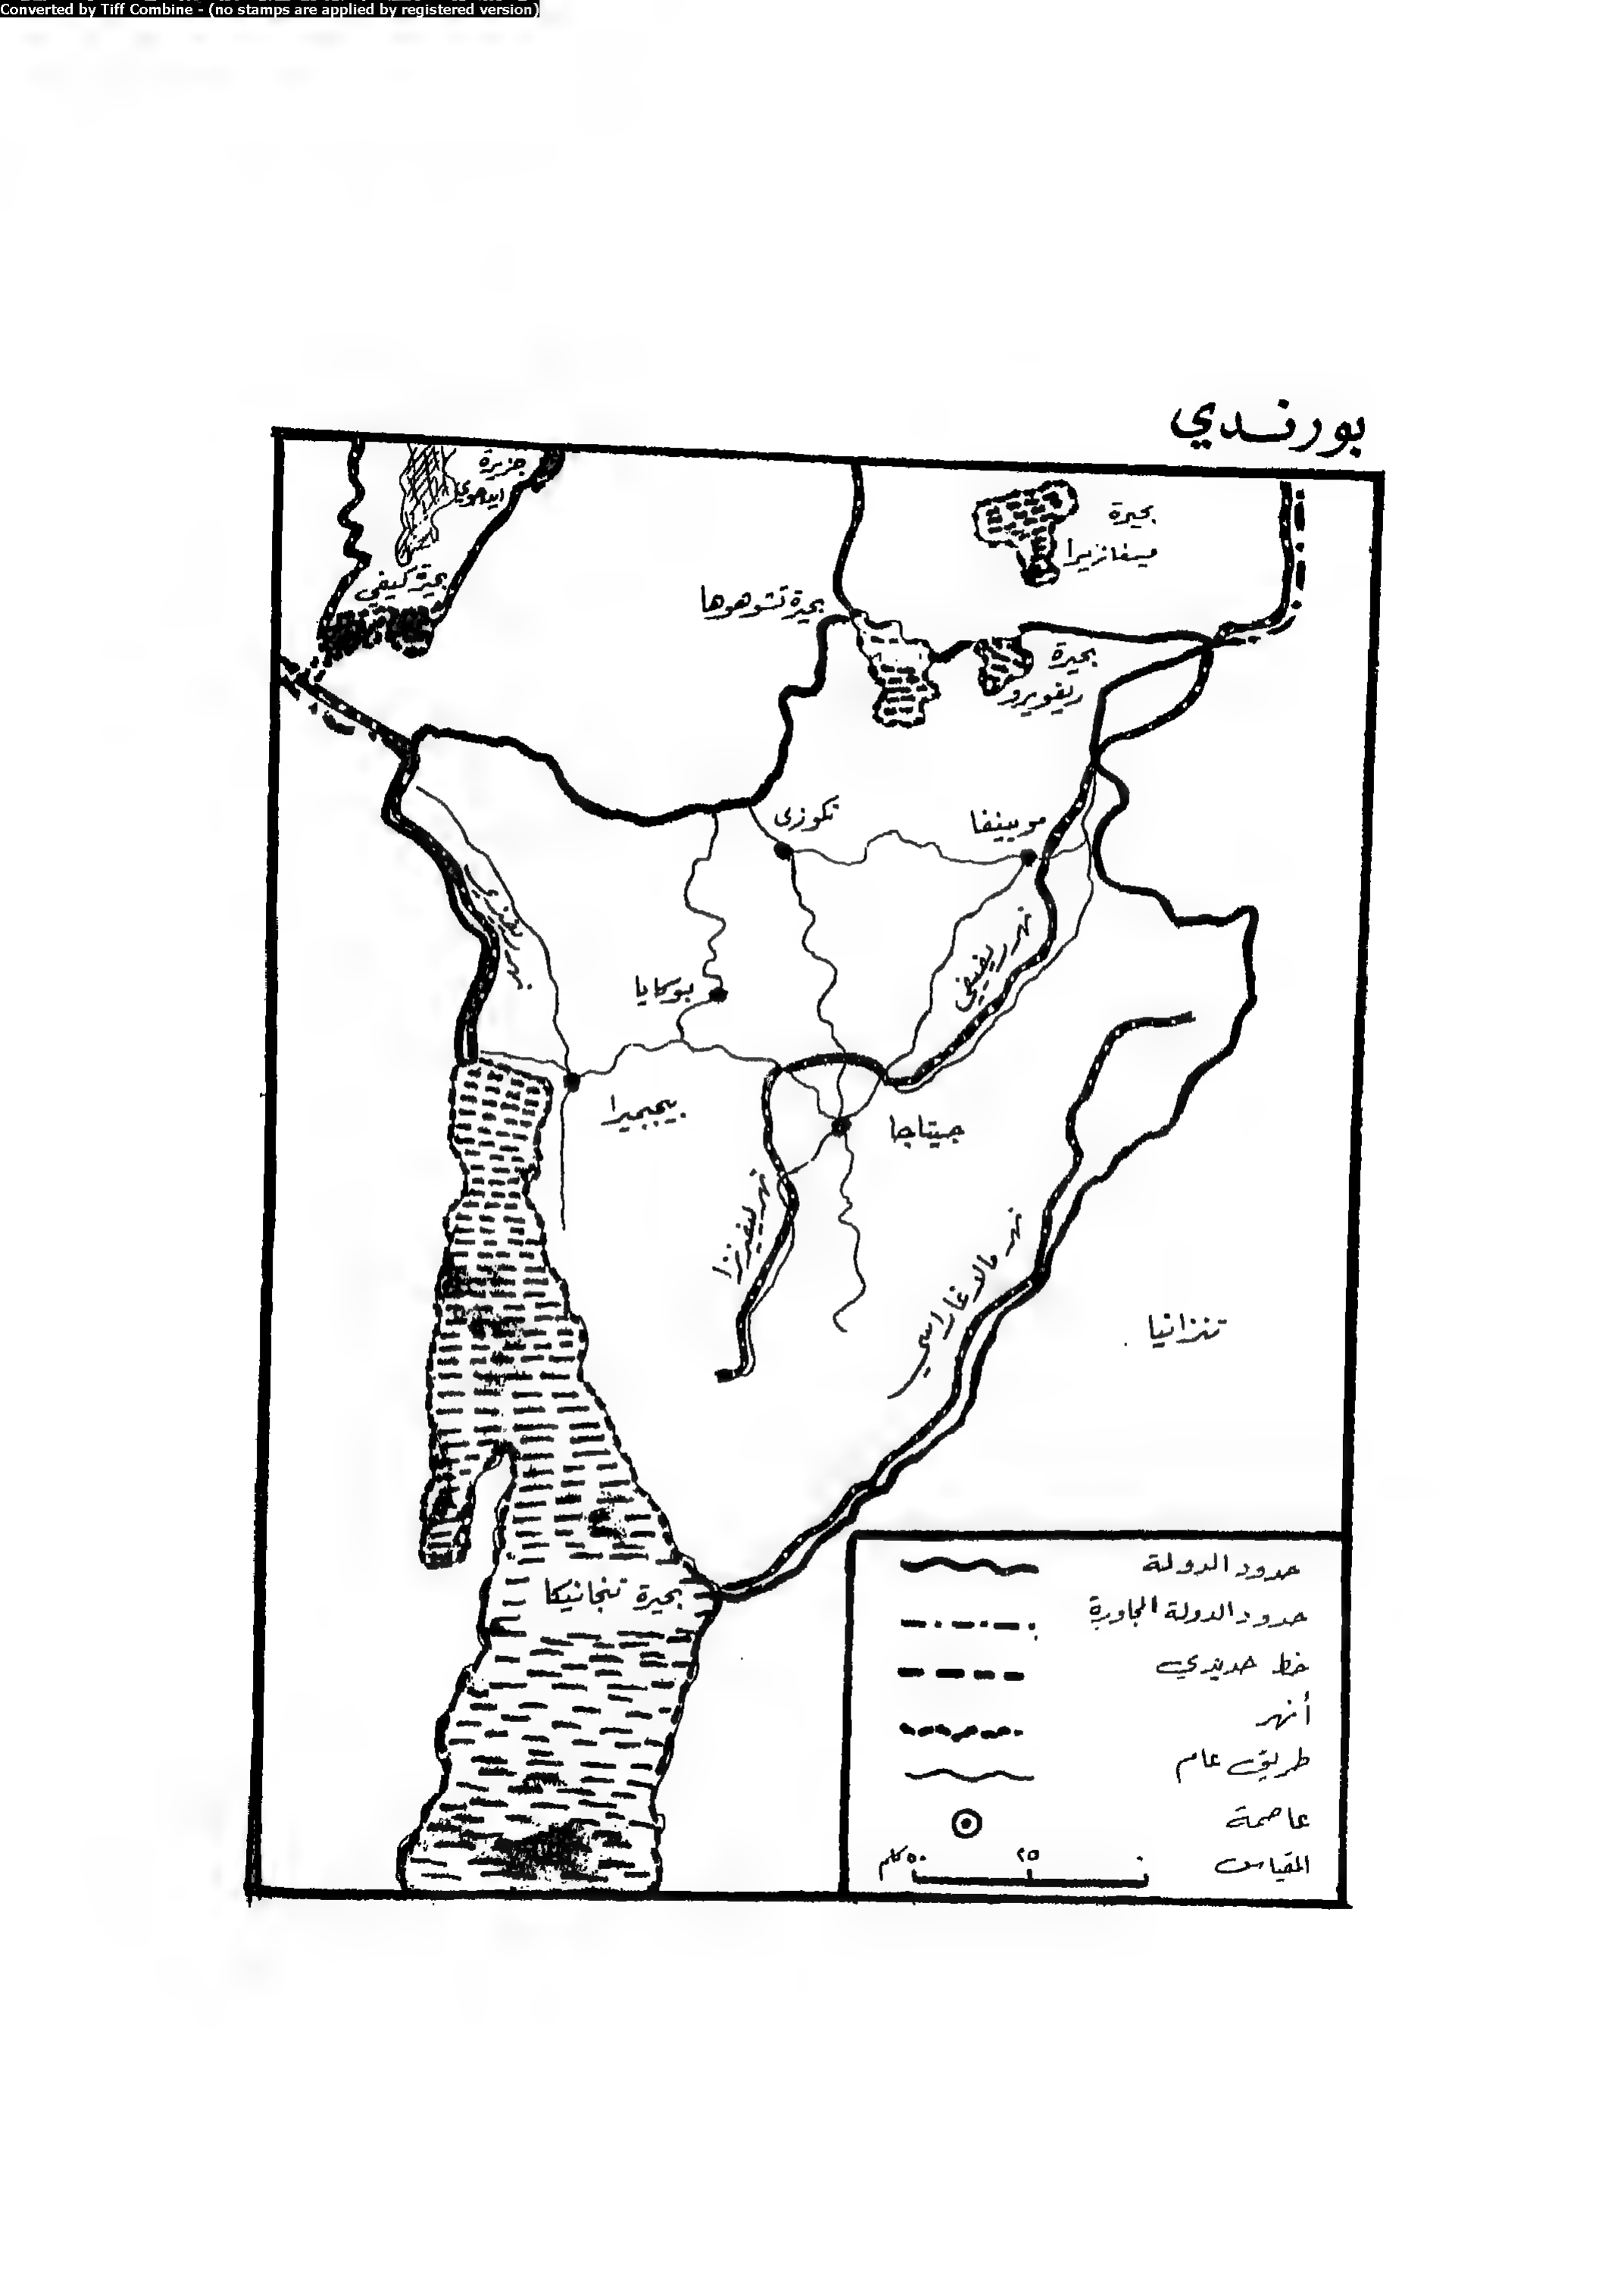 Converted by Tiff Combine - (no stamps are applied by registered version)
بورندي
جزيرة
ايدهوي
بحيرة كيفي
بحيرة
ميفانزيرا
بحيرة تشوهوها
بحيرة
ريفويرو
نكوزى
موينفا
نهر ريفيفي
بوكايا
بيجمبرا
جيتاجا
نهر ليفيرنزا
نهر مالاغاراسي
تنزانيا
بحيرة تنجانيكا
حدود الدولة
حدود الدولة المجاورة
خط حديدي
أنهر
طريق عام
عاصمة
المقياس
٠ ٢٥ ٥٠ كلم